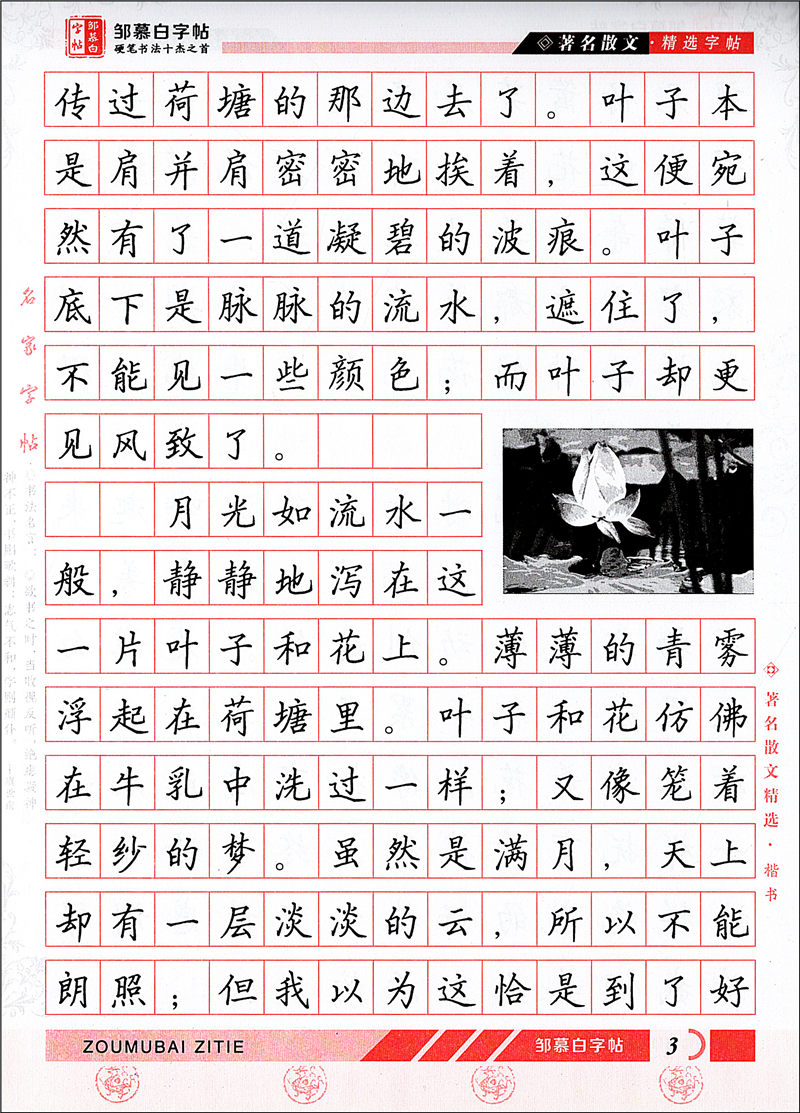 邹慕白字帖
邹慕白字帖
硬笔书法十杰之首
著名散文·精选字帖
传过荷塘的那边去了。叶子本
是肩并肩密密地挨着，这便宛
然有了一道凝碧的波痕。叶子
底下是脉脉的流水，遮住了，
不能见一些颜色；而叶子却更
见风致了。
月光如流水一
般，静静地泻在这
一片叶子和花上。薄薄的青雾
浮起在荷塘里。叶子和花仿佛
在牛乳中洗过一样；又像笼着
轻纱的梦。虽然是满月，天上
却有一层淡淡的云，所以不能
朗照；但我以为这恰是到了好
名家字帖
著名散文精选·楷书
ZOUMUBAI ZITIE
邹慕白字帖
3